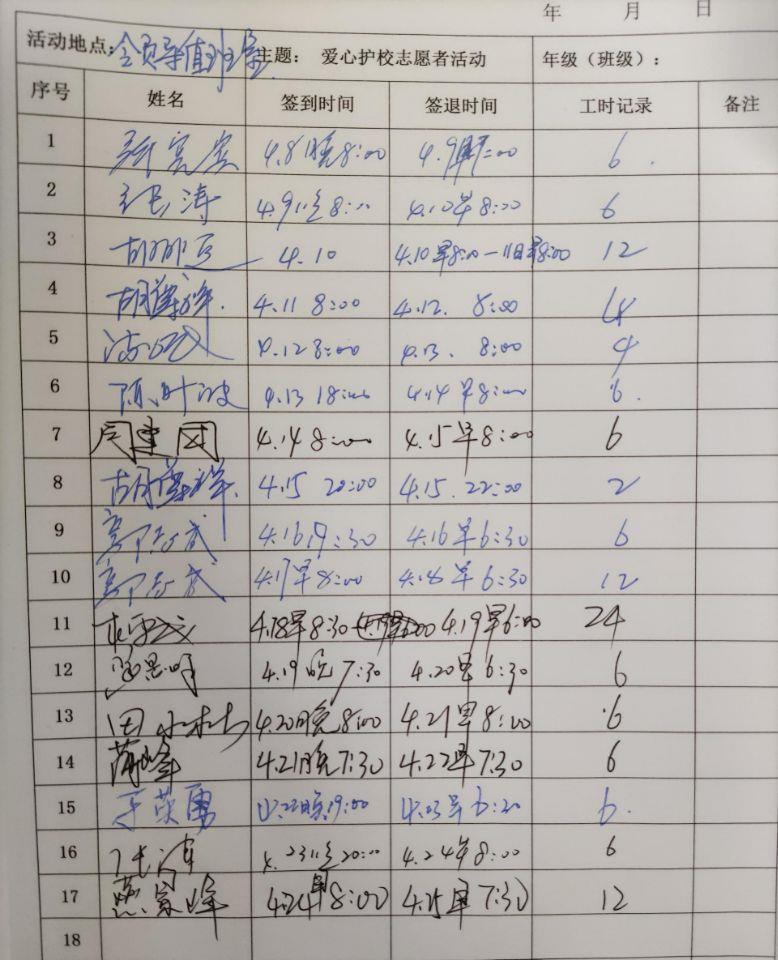 年 月 日
活动地点: 会员导值班室 主题： 爱心护校志愿者活动 年级（班级）：
序号 姓名 签到时间 签退时间 工时记录 备注
1 4.8晚8:00 4.9早7:00 6
2 张涛 4.9晚8:00 4.10早8:00 6
3 4.10 4.10早8:00-11日早8:00 12
4 4.11 8:00 4.12. 8:00
5 4.12 8:00 4.13. 8:00 4
6 陈叶波 4.13 18:00 4.14早8:00 6
7 周建团 4.14 8:00 4.15早8:00 6
8 4.15 20:00 4.15. 22:00 2
9 4.16 19:30 4.16早6:30 6
10 4.17早8:00 4.18早6:30 12
11 4.18早8:30 4.19早6:00 24
12 4.19晚7:30 4.20早6:30 6
13 田水林 4.20晚8:00 4.21早8:00 6
14 蒲峰 4.21晚7:30 4.22早7:30 6
15 于荣勇 4.22晚19:00 4.23早6:20 6
16 张涛 4.23晚20:00 4.24早8:00 6
17 燕富峰 4.24早8:00 4.25早7:30 12
18